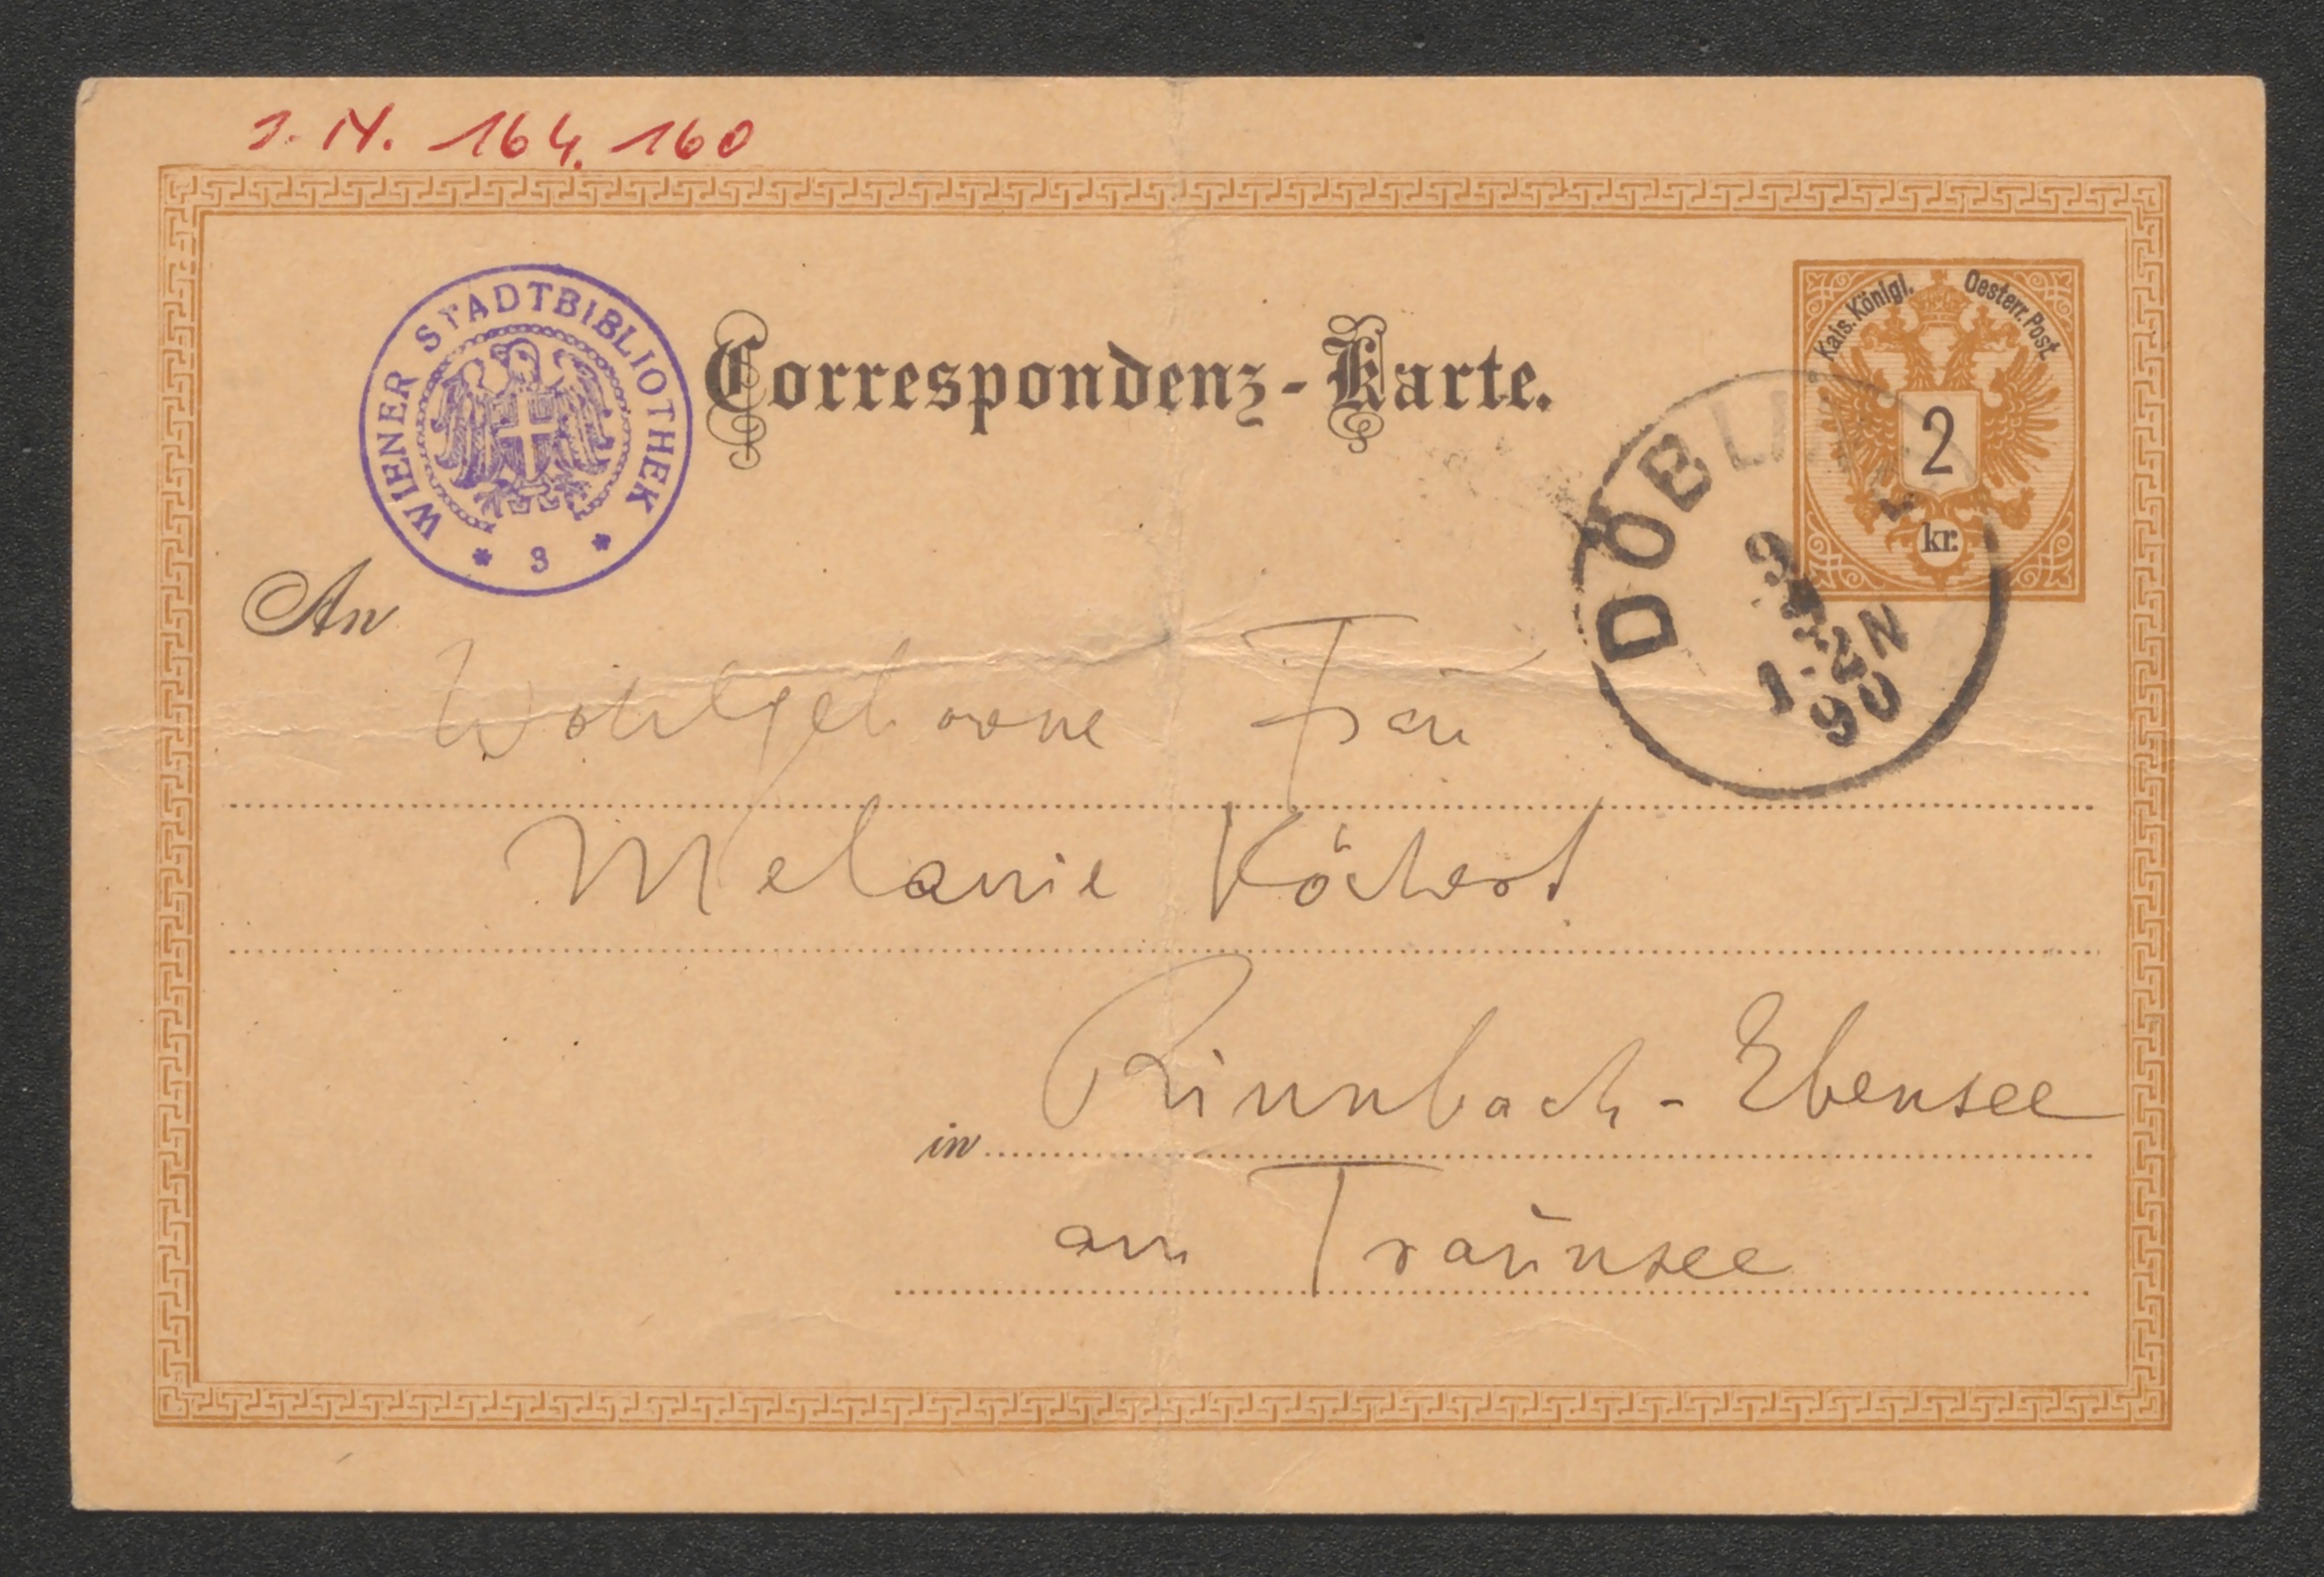 J. N. 164.160
WIENER STADTBIBLIOTHEK
* 3 *
Correspondenz-Karte.
Kais. Königl. Oesterr. Post.
2
kr.
DÖBLING
90
An
Wohlgeborne Frau
Melanie Köchert
in Rinnbach - Ebensee
am Traunsee